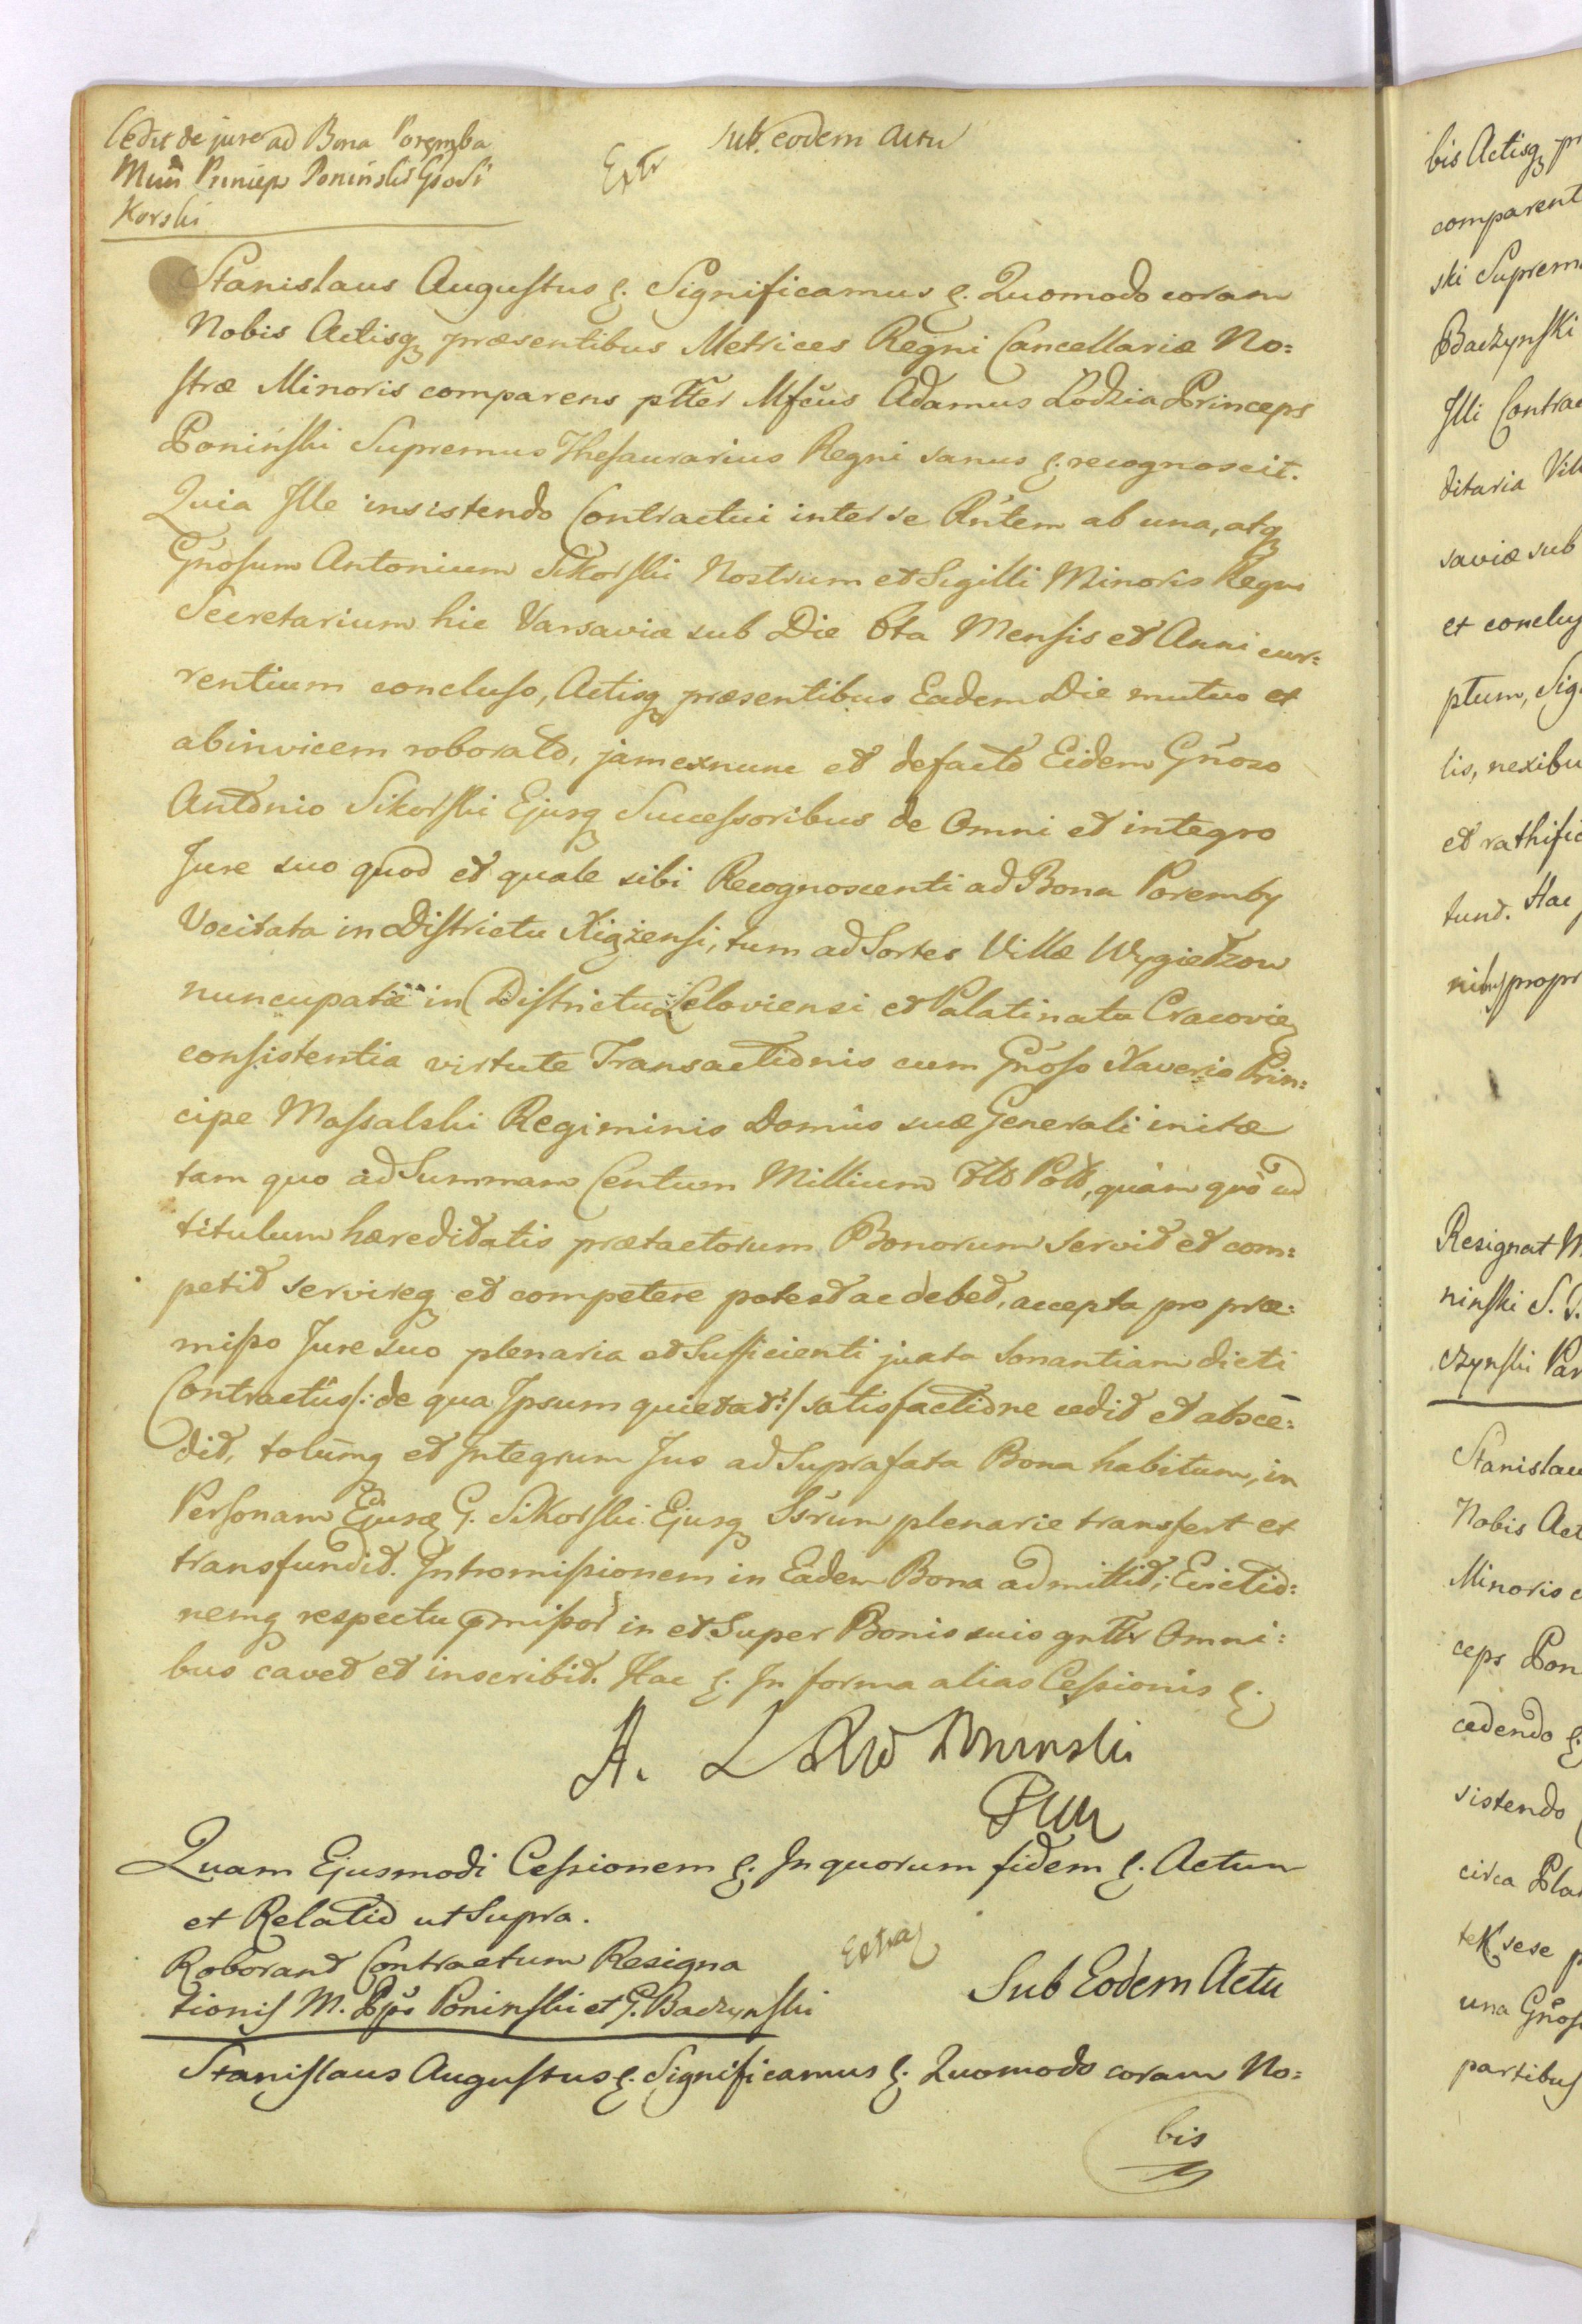 Cedit de jure ad Bona Poremba
Princeps Poninski G Si
korski
sub eodem Actu
Extr
Stanislaus Augustus &. Significamus &. Quomodo coram
Nobis Actisq præsentibus Metrices Regni Cancellariæ No:
stræ Minoris comparens ptter Mfcus Adamus Lodzia Princeps
Poniński Supremus Thesaurarius Regni sanus &. recognoscit.
Quia Ille insistendo Contractui inter se Rntem ab una, atq
Gnosum Antonium Sikorski Nostrum et Sigilli Minoris Regni
Secretarium hic Varsaviæ sub Die 6ta Mensis et Anni cur:
rentium concluso, Actisq præsentibus Eadem Die mutuo et
abinvicem roborato, jam exnunc et defacto Eidem Gnoso
Antonio Sikorski Ejusq Successoribus de Omni et integro
Jure suo quod et quale sibi Recognoscenti ad Bona Poremby
Vocitata in Districtu Xiążensi, tum ad Sortes Villæ Wygiełzow
nuncupatæ in Districtu Leloviensi et Palatinatu Cracovię
consistentia virtute Transactionis cum Gnoso Xaverio Prin:
cipe Massalski Regiminis Domûs suæ Generali initæ
tam quo ad Summam Centum Millium Flo Pol, quàm quo ad
titulum hæreditatis prætactorum Bonorum servit et com:
petit servireq et competere potest ac debet, accepta pro præ:
misso Jure suo plenaria et Sufficienti juxta Sonantiam dicti
Contractûs /: de qua Ipsum quietat :/ satisfactione cedit et absce:
dit, totumq et Integrum Jus ad Suprafata Bona habitum, in
Personam Ejusd G. Sikorski Ejusq Ssrum plenarie transfert et
transfundit. Intromissionem in Eadem Bona admittit; Evictio:
nemq respectu pmissor in et Super Bonis suis gntter Omni:
bus cavet et inscribit. Hac &. In forma alias Cessionis &.
A. L Poninski
Quam Ejusmodi Cessionem &. In quorum fidem &. Actum
et Relatio ut Supra.
Roborand Contractum Resigna
tionis M. Pps Poninski et G. Baczynski
Extra
Sub Eodem Actu
Stanislaus Augustus &. Significamus &. Quomodo coram No:
bis
bis Actisq pr
comparent
ski Suprem
Baczynski
Illi Contrac
ditaria Vill
saviæ sub
et conclus
ptum, Sig
lis, nexibu
et rathific
tund. Hac
nibus propr
Resignat M
ninski S.
czynski Par
Stanislau
Nobis Act
Minoris c
ceps Pon
cedendo &
sistendo
circa Pla
tek sese p
una Gnos
partibus